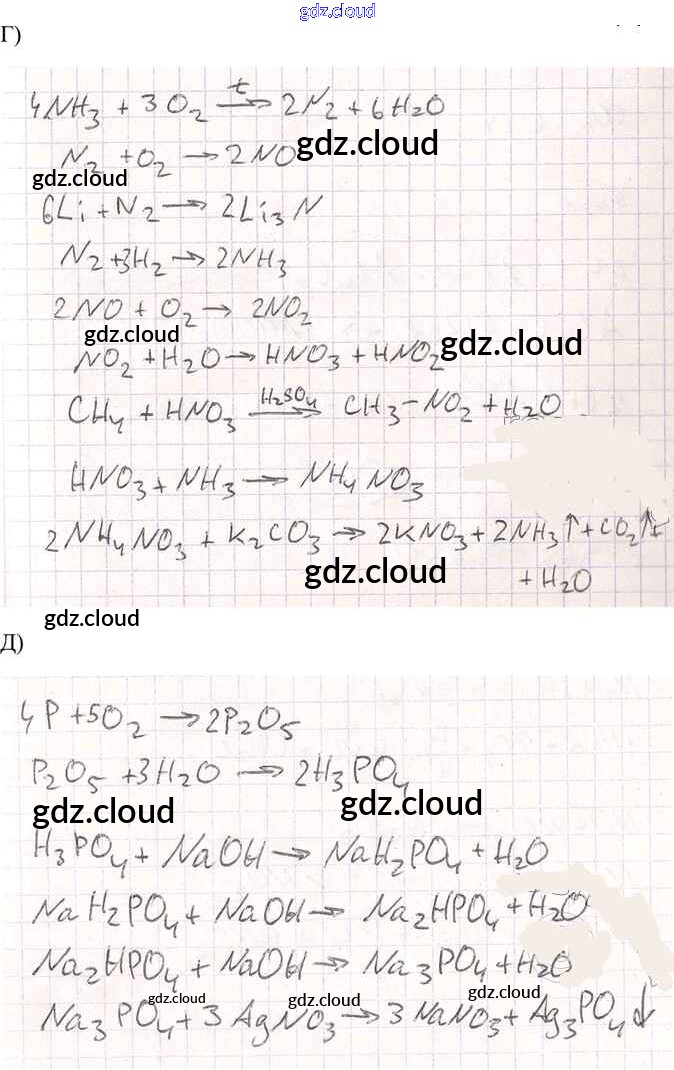 gdz.cloud
Г)
4NH₃ + 3O₂ →ᵗ 2N₂ + 6H₂O
gdz.cloud
N₂ + O₂ → 2NO
gdz.cloud
6Li + N₂ → 2Li₃N
N₂ + 3H₂ → 2NH₃
2NO + O₂ → 2NO₂
gdz.cloud
gdz.cloud
NO₂ + H₂O → HNO₃ + HNO₂
H₂SO₄
CH₄ + HNO₃ → CH₃–NO₂ + H₂O
HNO₃ + NH₃ → NH₄NO₃
2NH₄NO₃ + K₂CO₃ → 2KNO₃ + 2NH₃↑ + CO₂↑+
gdz.cloud
+ H₂O
gdz.cloud
Д)
4P + 5O₂ → 2P₂O₅
P₂O₅ + 3H₂O → 2H₃PO₄
gdz.cloud gdz.cloud
H₃PO₄ + NaOH → NaH₂PO₄ + H₂O
NaH₂PO₄ + NaOH → Na₂HPO₄ + H₂O
Na₂HPO₄ + NaOH → Na₃PO₄ + H₂O
gdz.cloud gdz.cloud gdz.cloud
Na₃PO₄ + 3AgNO₃ → 3NaNO₃ + Ag₃PO₄↓